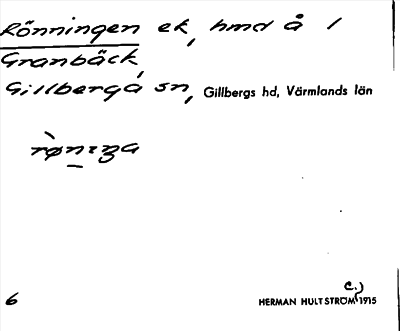 Rönningen ek, hmd å 1
Granbäck,
Gillberga sn, Gillbergs hd, Värmlands län
rønɪŋa
6
C.)
HERMAN HULTSTRÖM 1915